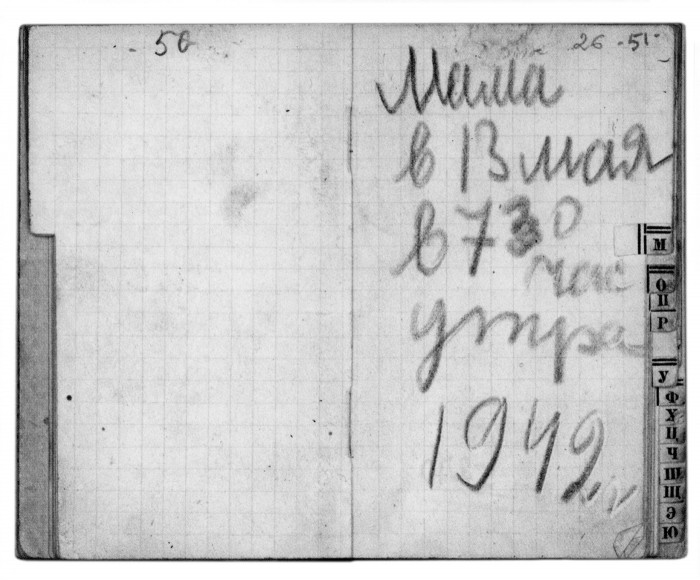 50
26 - 51
Мама
в 13 мая
в 7 30
час
утра
1942 г
М
О
П
Р
У
Ф
Х
Ц
Ч
Ш
Щ
Э
Ю